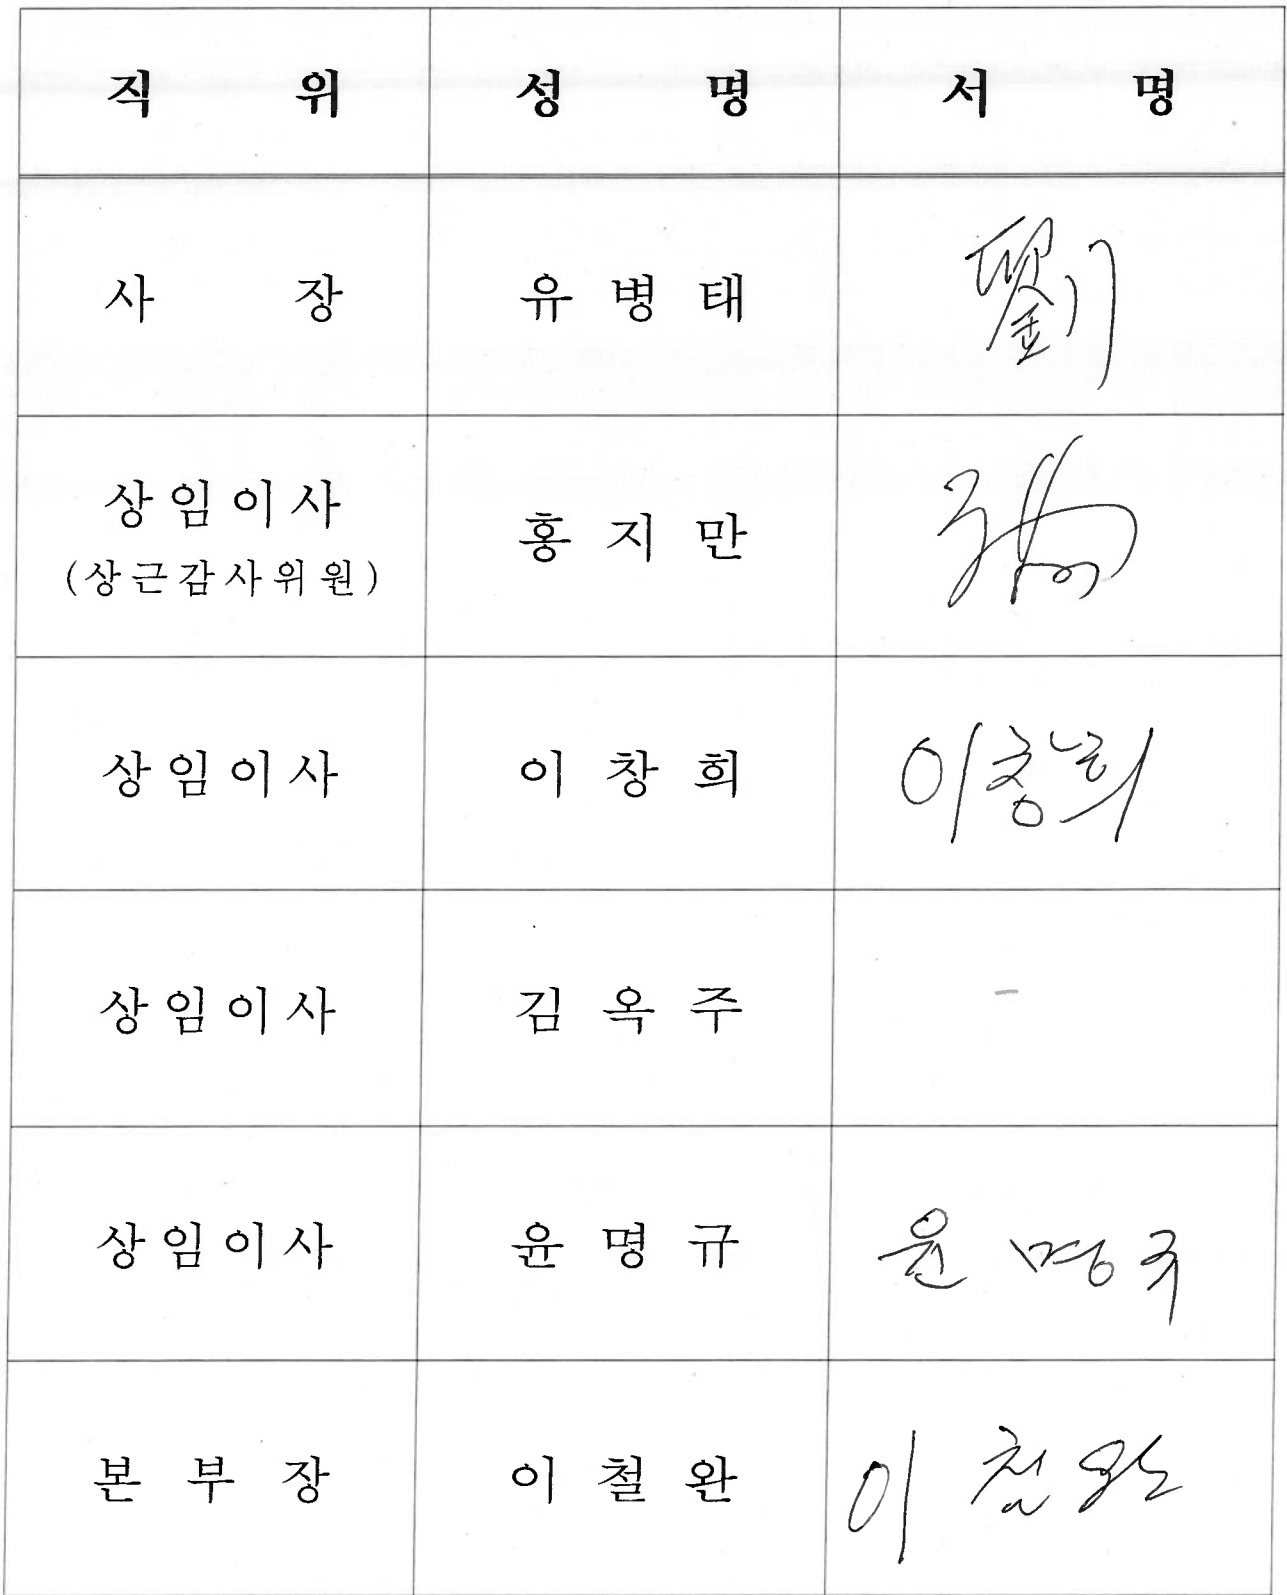 직 위 성 명 서 명
사 장 유 병 태 劉
상임이사
(상근감사위원)
홍 지 만
상임이사 이 창 희 이창희
상임이사 김 옥 주 -
상임이사 윤 명 규 윤 명규
본 부 장 이 철 완 이 철완